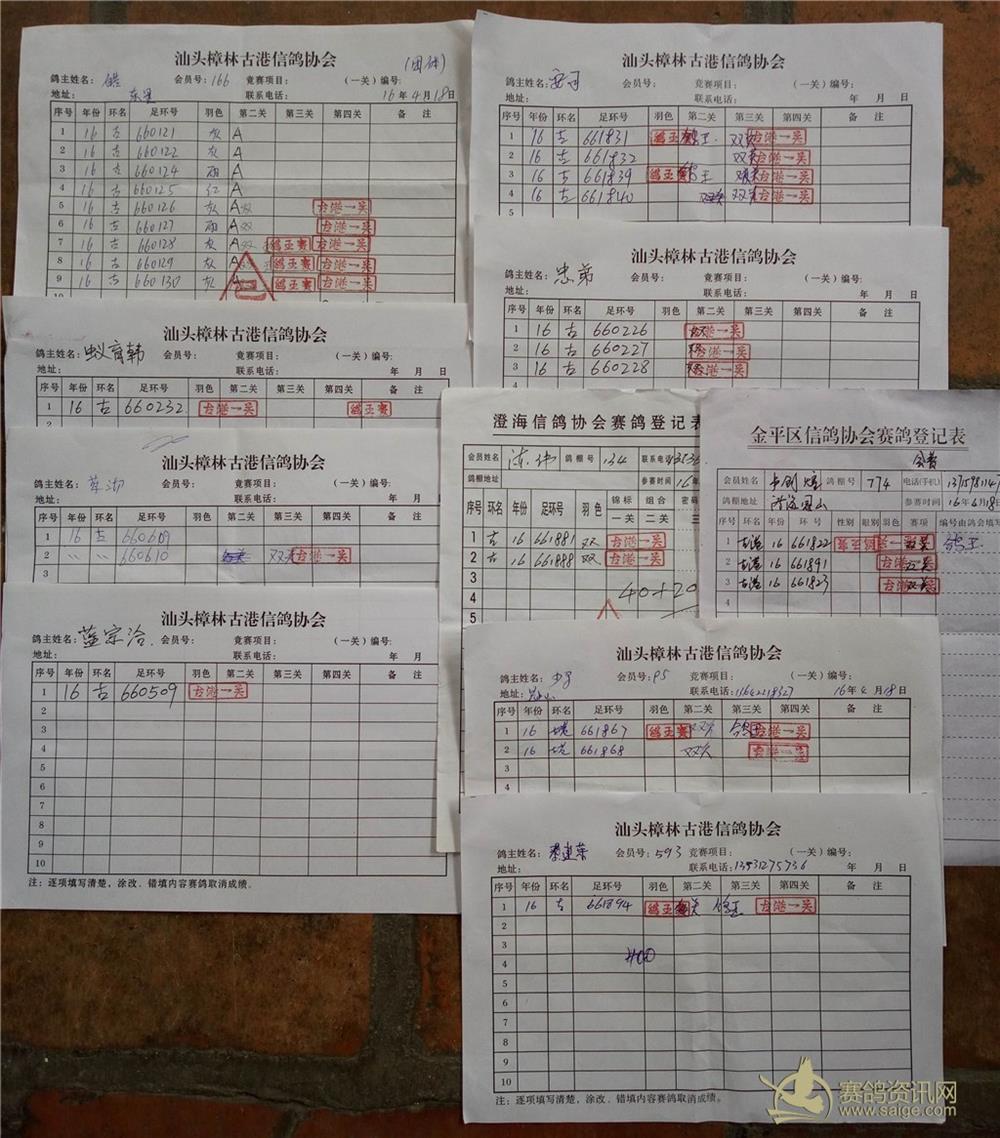 汕头樟林古港信鸽协会 (团体)
鸽主姓名: 会员号: 166 竞赛项目: (一关)编号:
地址: 东里 联系电话: 16年4月18日
序号 年份 环名 足环号 羽色 第二关 第三关 第四关 备 注
1 16 古 660121 灰 A
2 16 古 660122 灰 A
3 16 古 660124 雨 A
4 16 古 660125 红 A
5 16 古 660126 灰 A双 古港一吴
6 16 古 660127 雨 A双 古港一吴
7 16 古 660128 灰 A双 鸽王赛 古港一吴
8 16 古 660129 灰 A 鸽王赛 古港一吴
9 16 古 660130 灰 A 鸽王赛 古港一吴
10
汕头樟林古港信鸽协会
鸽主姓名: 会员号: 竞赛项目: (一关)编号:
地址: 联系电话: 年 月 日
序号 年份 环名 足环号 羽色 第二关 第三关 第四关 备 注
1 16 古 661831 鸽王赛 王 双 古港一吴
2 16 古 661832 双 古港一吴
3 16 古 661839 鸽王赛 王 双 古港一吴
4 16 古 661840 双 双 古港一吴
5
汕头樟林古港信鸽协会
鸽主姓名: 忠弟 会员号: 竞赛项目: (一关)编号:
地址: 联系电话: 年 月 日
序号 年份 环名 足环号 羽色 第二关 第三关 第四关 备 注
1 16 古 660226 古港一吴
2 16 古 660227 古港一吴
3 16 古 660228 古港一吴
汕头樟林古港信鸽协会
鸽主姓名: 蚁育韩 会员号: 竞赛项目: (一关)编号:
地址: 联系电话: 年 月 日
序号 年份 环名 足环号 羽色 第二关 第三关 第四关 备 注
1 16 古 660232 古港一吴 鸽王赛
汕头樟林古港信鸽协会
鸽主姓名: 会员号: 竞赛项目: (一关)编号:
地址: 联系电话: 年 月 日
序号 年份 环名 足环号 羽色 第二关 第三关 第四关 备 注
1 16 古 660609
2 〃 〃 660610 双 古港一吴
3
汕头樟林古港信鸽协会
鸽主姓名: 蓝宗洽 会员号: 竞赛项目: (一关)编号:
地址: 联系电话: 年 月
序号 年份 环名 足环号 羽色 第二关 第三关 第四关 备 注
1 16 古 660509 古港一吴
2
3
4
5
6
7
8
9
10
注:逐项填写清楚,涂改、错填内容赛鸽取消成绩。
澄海信鸽协会赛鸽登记表
会员姓名 陈伟 鸽棚号 134 联系电
鸽棚地址 参赛时间 16年
序号 环名 年份 足环号 羽色 锦标 组合 密码
一关 二关 三
1 古 16 661881 双 古港一吴
2 古 16 661888 双 古港一吴
3
4 40+20
5
金平区信鸽协会赛鸽登记表
会员姓名 鸽棚号 774 电话(手机)
鸽棚地址 参赛时间 16年6月18日
序号 环名 年份 环 号 性别 眼别 羽色 赛项 编号由鸽会填写
1 古港 16 661822 鸽王赛 一吴 鸽王
2 古港 16 661891 古港
3 古港 16 661823 古港
4
汕头樟林古港信鸽协会
鸽主姓名: 会员号: 95 竞赛项目: (一关)编号:
地址: 联系电话: 16年4月18日
序号 年份 环名 足环号 羽色 第二关 第三关 第四关 备 注
1 16 661867 鸽王赛 双 古港一吴
2 16 661868 双
3
4
5
汕头樟林古港信鸽协会
鸽主姓名: 蔡建荣 会员号: 593 竞赛项目: (一关)编号:
地址: 联系电话: 13431275736 年 月 日
序号 年份 环名 足环号 羽色 第二关 第三关 第四关 备 注
1 16 古 661894 鸽王赛 关 鸽王 古港一吴
2
3
4
5
6
7
8
9
10
注:逐项填写清楚,涂改、错填内容赛鸽取消成绩。
赛鸽资讯网
www.saige.com